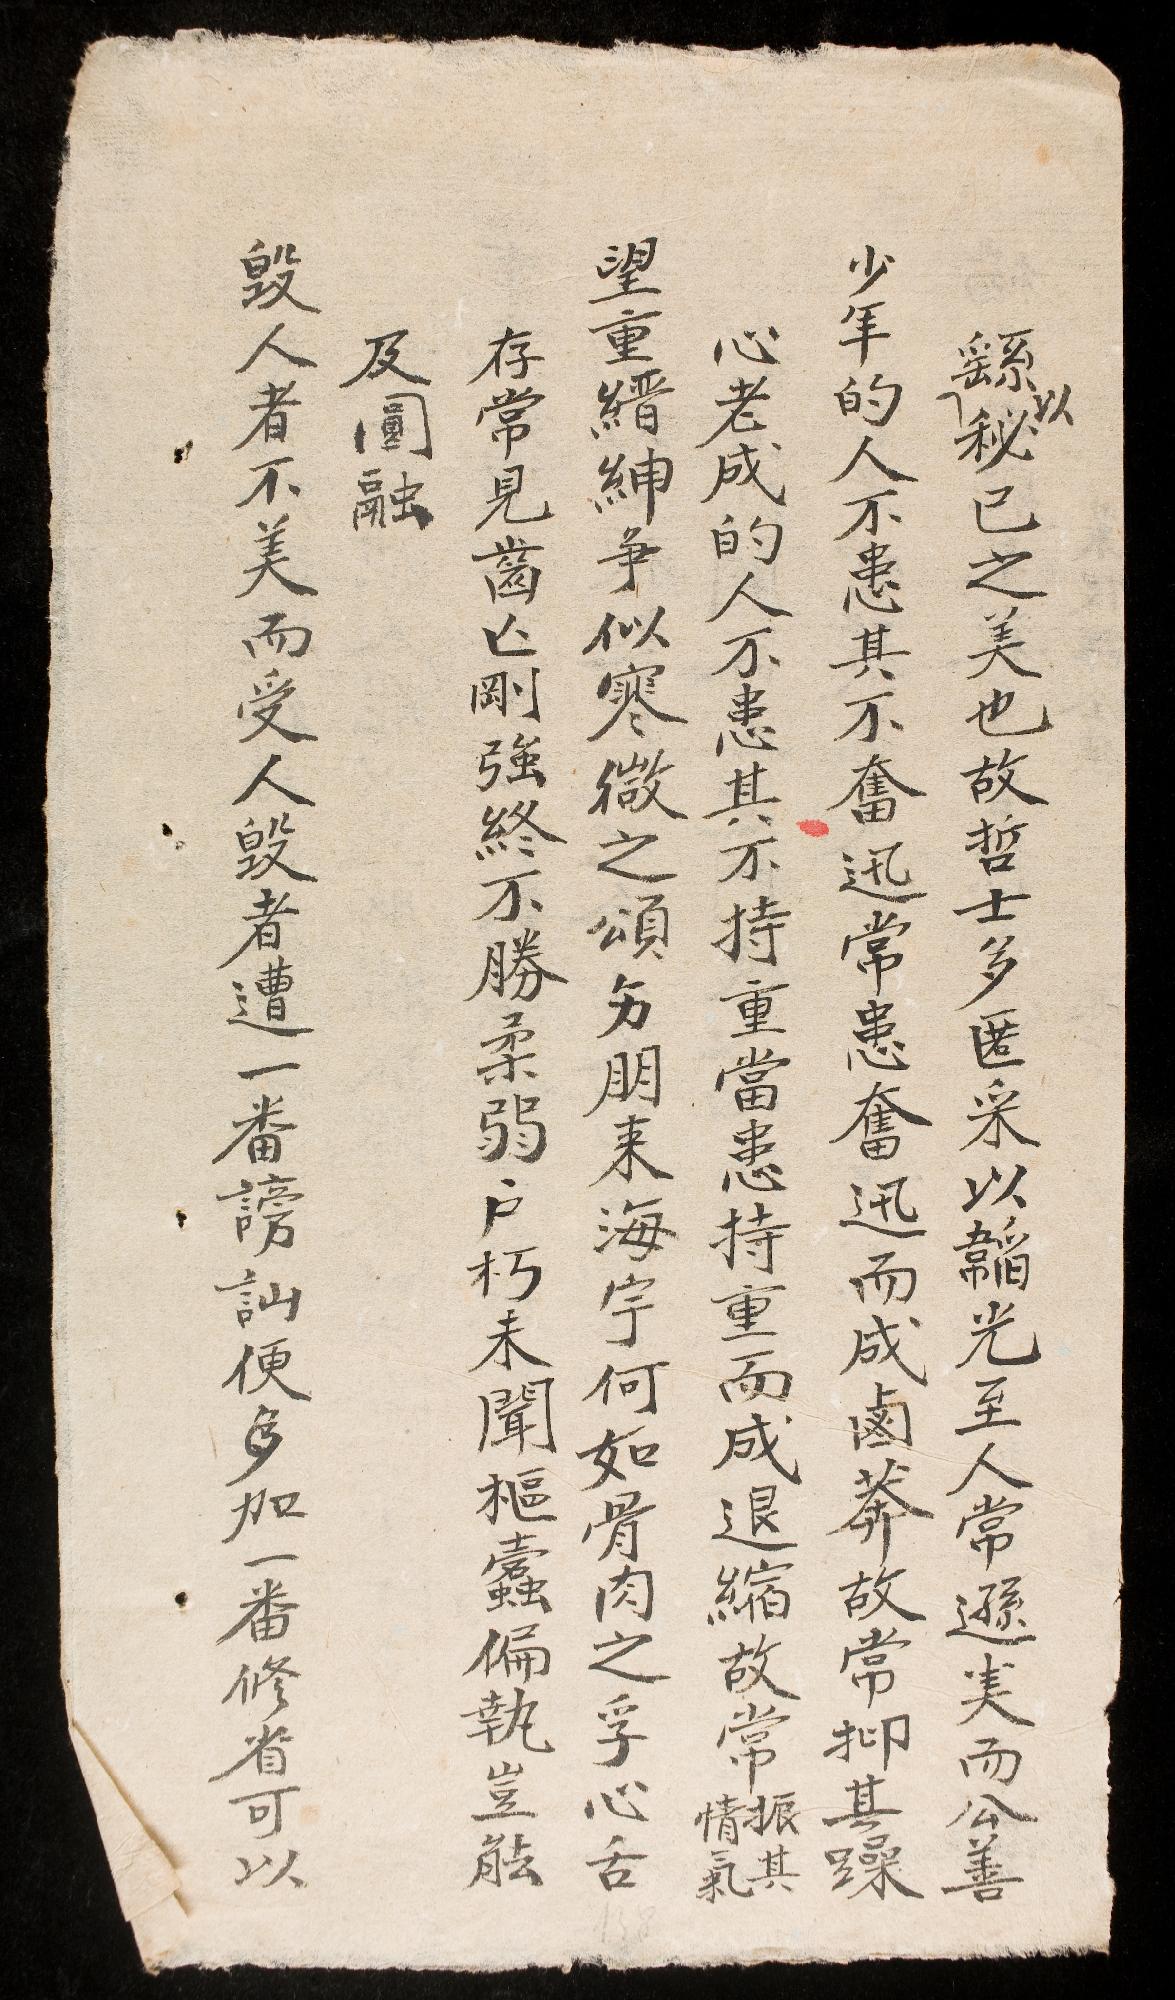 繇以秘已之美也故哲士多匿采以韜光至人常遜美而公善
少年的人不患其不奮迅常患奮迅而成鹵莽故常抑其躁
心老成的人不患其不持重當患持重而成退縮故常振其情氣
望重縉紳爭似寒微之頌朋来海宇何如骨肉之孚心舌
存常見齒亡剛強終不勝柔弱户朽未聞樞蠹偏執豈能
及圓融
毀人者不美而受人毀者遭一番謗訕便多加一番修省可以